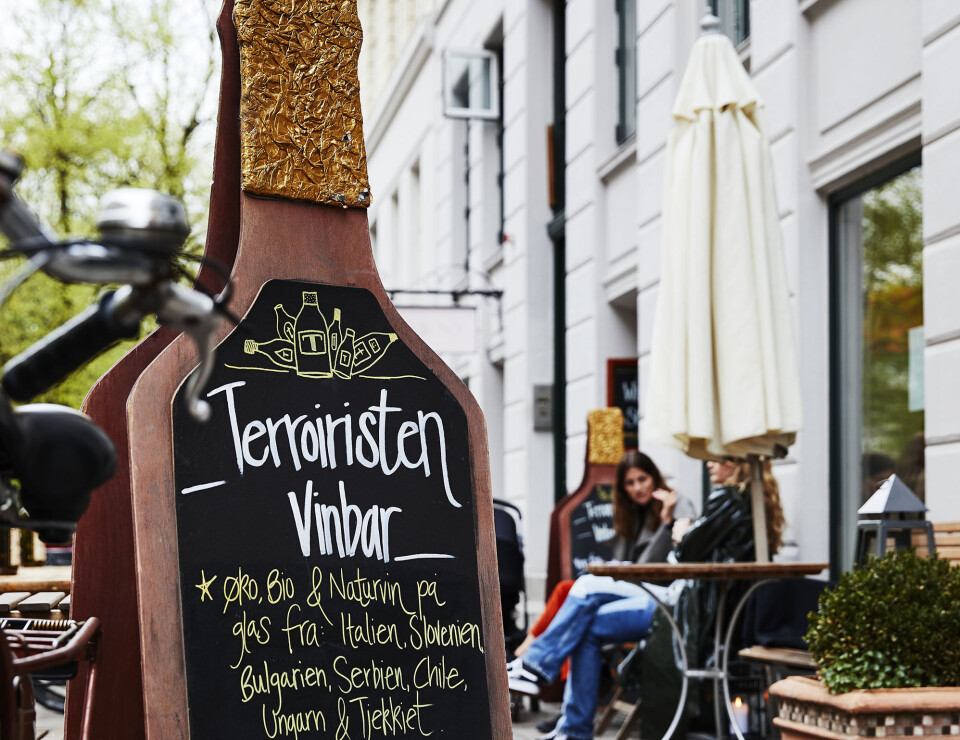 T
Terroiristen
Vinbar
Øko, Bio & Naturvin på
glas fra: Italien, Slovenien,
Bulgarien, Serbien, Chile,
Ungarn & Tjekkiet.